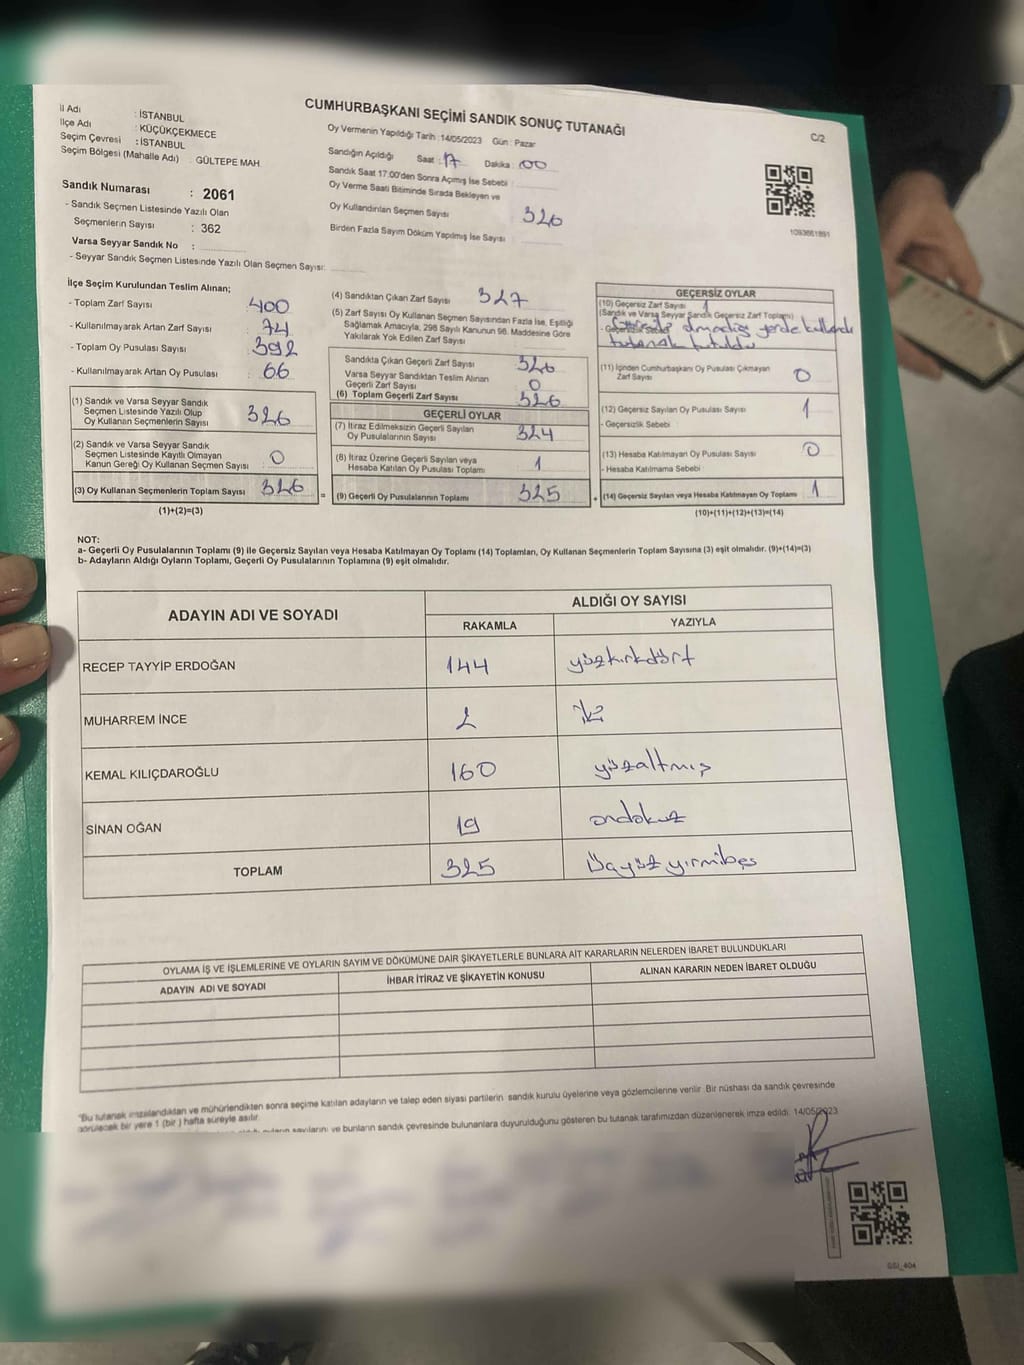 CUMHURBAŞKANI SEÇİMİ SANDIK SONUÇ TUTANAĞI
C/2
İl Adı : İSTANBUL
İlçe Adı : KÜÇÜKÇEKMECE
Seçim Çevresi : İSTANBUL
Seçim Bölgesi (Mahalle Adı) : GÜLTEPE MAH.
Sandık Numarası : 2061
- Sandık Seçmen Listesinde Yazılı Olan
Seçmenlerin Sayısı : 362
Varsa Seyyar Sandık No :
- Seyyar Sandık Seçmen Listesinde Yazılı Olan Seçmen Sayısı:
Oy Vermenin Yapıldığı Tarih :14/05/2023 Gün : Pazar
Sandığın Açıldığı Saat : 17 Dakika : 00
Sandık Saat 17:00'den Sonra Açımış İse Sebebi :
Oy Verme Saati Bitiminde Sırada Bekleyen ve
Oy Kullandırılan Seçmen Sayısı 326
Birden Fazla Sayım Döküm Yapılmış İse Sayısı :
1093661891
İlçe Seçim Kurulundan Teslim Alınan;
- Toplam Zarf Sayısı : 400
- Kullanılmayarak Artan Zarf Sayısı : 74
- Toplam Oy Pusulası Sayısı : 392
- Kullanılmayarak Artan Oy Pusulası : 66
(1) Sandık ve Varsa Seyyar Sandık
Seçmen Listesinde Yazılı Olup
Oy Kullanan Seçmenlerin Sayısı : 326
(2) Sandık ve Varsa Seyyar Sandık
Seçmen Listesinde Kayıtlı Olmayan
Kanun Gereği Oy Kullanan Seçmen Sayısı : 0
(3) Oy Kullanan Seçmenlerin Toplam Sayısı 326
(1)+(2)=(3)
(4) Sandıktan Çıkan Zarf Sayısı 327
(5) Zarf Sayısı Oy Kullanan Seçmen Sayısından Fazla İse, Eşitliği
Sağlamak Amacıyla, 298 Sayılı Kanunun 98. Maddesine Göre
Yakılarak Yok Edilen Zarf Sayısı
Sandıkta Çıkan Geçerli Zarf Sayısı 326
Varsa Seyyar Sandıktan Teslim Alınan
Geçerli Zarf Sayısı 0
(6) Toplam Geçerli Zarf Sayısı 326
GEÇERLİ OYLAR
(7) İtiraz Edilmeksizin Geçerli Sayılan
Oy Pusulalarının Sayısı 324
(8) İtiraz Üzerine Geçerli Sayılan veya
Hesaba Katılan Oy Pusulası Toplamı 1
= (9) Geçerli Oy Pusulalarının Toplamı 325
GEÇERSİZ OYLAR
(10) Geçersiz Zarf Sayısı 1
(Sandık ve Varsa Seyyar Sandık Geçersiz Zarf Toplamı)
- Geçersizlik Sebebi olmadığı yerde kullandı
tutanak tutuldu
(11) İçinden Cumhurbaşkanı Oy Pusulası Çıkmayan
Zarf Sayısı 0
(12) Geçersiz Sayılan Oy Pusulası Sayısı 1
- Geçersizlik Sebebi :
(13) Hesaba Katılmayan Oy Pusulası Sayısı 0
- Hesaba Katılmama Sebebi
+ (14) Geçersiz Sayılan veya Hesaba Katılmayan Oy Toplamı 1
(10)+(11)+(12)+(13)=(14)
NOT:
a- Geçerli Oy Pusulalarının Toplamı (9) ile Geçersiz Sayılan veya Hesaba Katılmayan Oy Toplamı (14) Toplamları, Oy Kullanan Seçmenlerin Toplam Sayısına (3) eşit olmalıdır. (9)+(14)=(3)
b- Adayların Aldığı Oyların Toplamı, Geçerli Oy Pusulalarının Toplamına (9) eşit olmalıdır.
ADAYIN ADI VE SOYADI
ALDIĞI OY SAYISI
RAKAMLA YAZIYLA
RECEP TAYYİP ERDOĞAN 144 yüzkırkdört
MUHARREM İNCE 2 iki
KEMAL KILIÇDAROĞLU 160 yüzaltmış
SİNAN OĞAN 19 ondokuz
TOPLAM 325 üçyüzyirmibeş
OYLAMA İŞ VE İŞLEMLERİNE VE OYLARIN SAYIM VE DÖKÜMÜNE DAİR ŞİKAYETLERLE BUNLARA AİT KARARLARIN NELERDEN İBARET BULUNDUKLARI
ADAYIN ADI VE SOYADI İHBAR İTİRAZ VE ŞİKAYETİN KONUSU ALINAN KARARIN NEDEN İBARET OLDUĞU
"Bu tutanak imzalandıktan ve mühürlendikten sonra seçime katılan adayların ve talep eden siyasi partilerin sandık kurulu üyelerine veya gözlemcilerine verilir. Bir nüshası da sandık çevresinde
görülecek bir yere 1 (bir) hafta süreyle asılır.
sayılarını ve bunların sandık çevresinde bulunanlara duyurulduğunu gösteren bu tutanak tarafımızdan düzenlenerek imza edildi. 14/05/2023
GSI_404